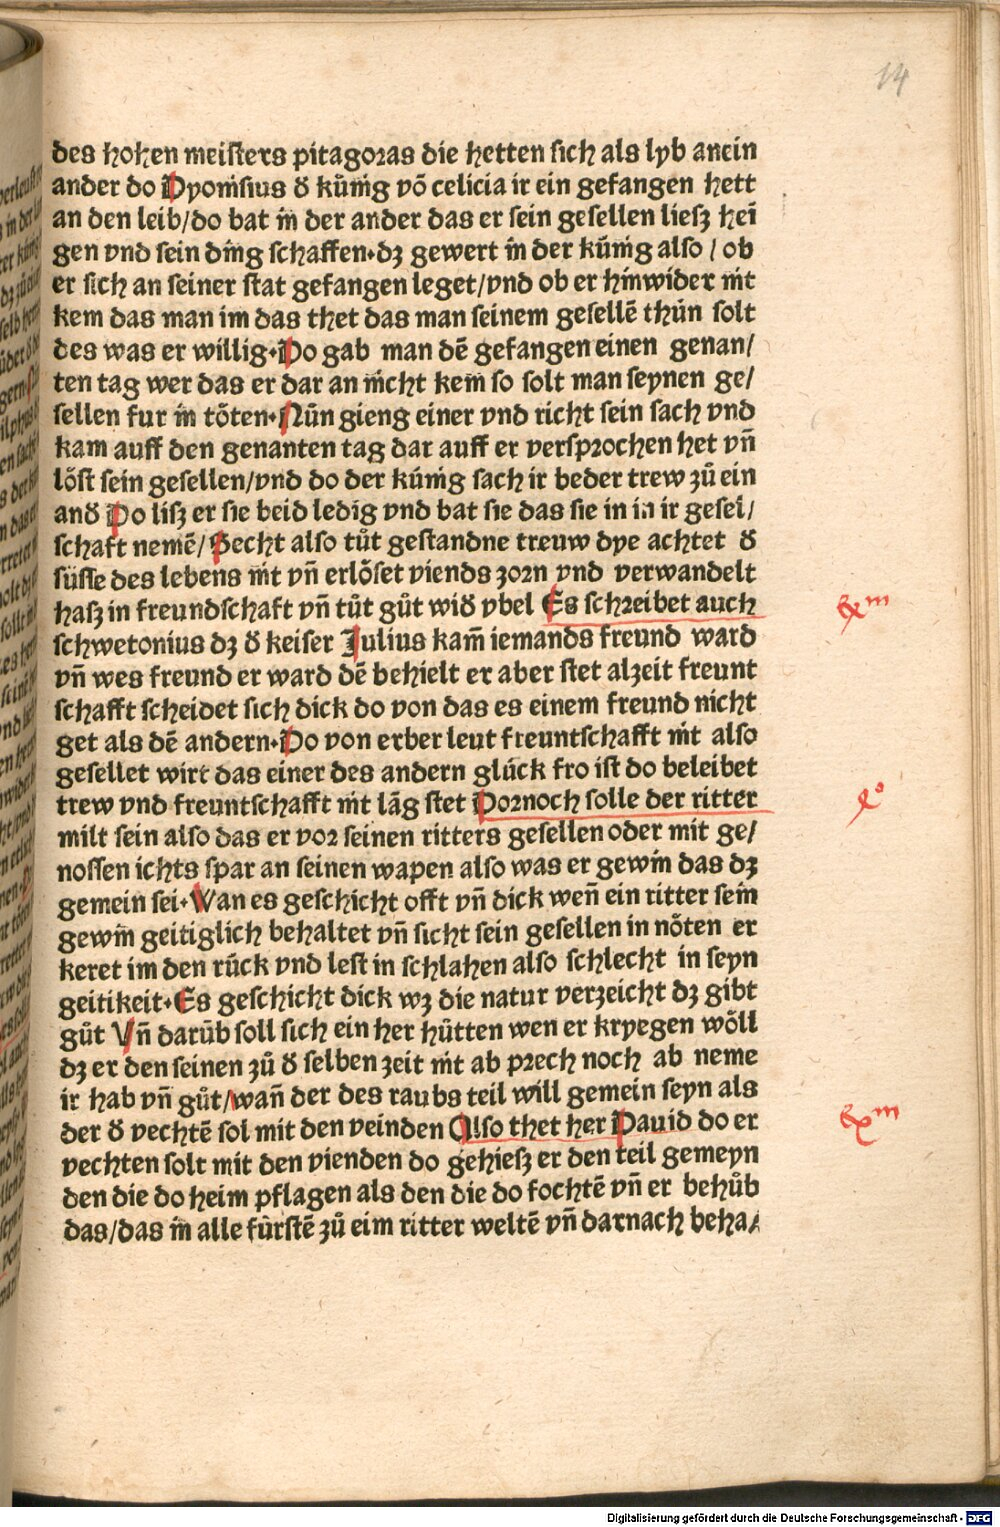 14
des hohen meisters pitagoras die hetten sich als lyb anein
ander do Dyonisius d̕ kűnig võ celicia ir ein gefangen hett
an den leib/do bat in der ander das er sein gesellen liesz hei
gen vnd sein ding schaffen·dz gewert in der kűnig also / ob
er sich an seiner stat gefangen leget/vnd ob er hinwider nit
kem das man im das thet das man seinem gesellē thůn solt
des was er willig·Do gab man dē gefangen einen genan/
ten tag wer das er dar an nicht kem so solt man seynen ge/
sellen fur in tőten·Nůn gieng einer vnd richt sein sach vnd
kam auff den genanten tag dar auff er versprochen het vñ
lőst sein gesellen/vnd do der kűnig sach ir beder trew zů ein
and̕ Do lisz er sie beid ledig vnd bat sie das sie in in ir gesel/
schaft nemē/Secht also tůt gestandne treuw dye achtet d̕
sűsse des lebens nit vñ erlőset viends zorn vnd verwandelt
hasz in freundschaft vñ tůt gůt wid̕ vbel Es schreibet auch
exm
schwetonius dz d̕ keiser Julius kam̄ iemands freund ward
vñ wes freund er ward dē behielt er aber stet alzeit freunt
schafft scheidet sich dick do von das es einem freund nicht
get als dē andern·Do von erber leut freuntschafft nit also
gesellet wirt das einer des andern glűck fro ist do beleibet
trew vnd freuntschafft nit lãg stet Dornoch solle der ritter
milt sein also das er vor seinen ritters gesellen oder mit ge/
nossen ichts spar an seinen wapen also was er gewin das dz
gemein sei·Wan es geschicht offt vñ dick weñ ein ritter sein
gewin geitiglich behaltet vñ sicht sein gesellen in nőten er
keret im den rűck vnd lest in schlahen also schlecht in seyn
geitikeit·Es geschicht dick wz die natur verzeicht dz gibt
gůt Vñ darűb soll sich ein her hűtten wen er kryegen wőll
dz er den seinen zů d̕ selben zeit nit ab prech noch ab neme
ir hab vñ gůt/wañ der des raubs teil will gemein seyn als
der d̕ vechtē sol mit den veinden Also thet her Dauid do er
exm
vechten solt mit den vienden do gehiesz er den teil gemeyn
den die do heim pflagen als den die do fochtē vñ er behůb
das/das in alle fűrstē zů eim ritter weltē vñ darnach beha/
Digitalisierung gefördert durch die Deutsche Forschungsgemeinschaft - DFG